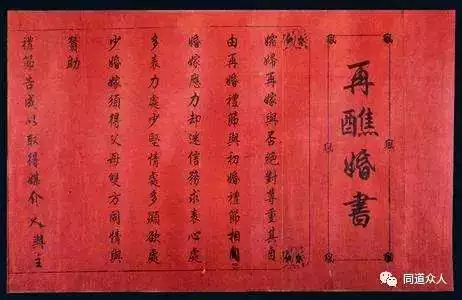 再醮婚書
孀婦再嫁與否絕對尊重其自
由再婚禮節與初婚禮節相同
婚嫁應力却迷信務求衷心處
多衷力處少堅情處多顧欲處
少婚嫁須得父母雙方同情與
贊助
禮節告成以取得媒介人
主
同道众人